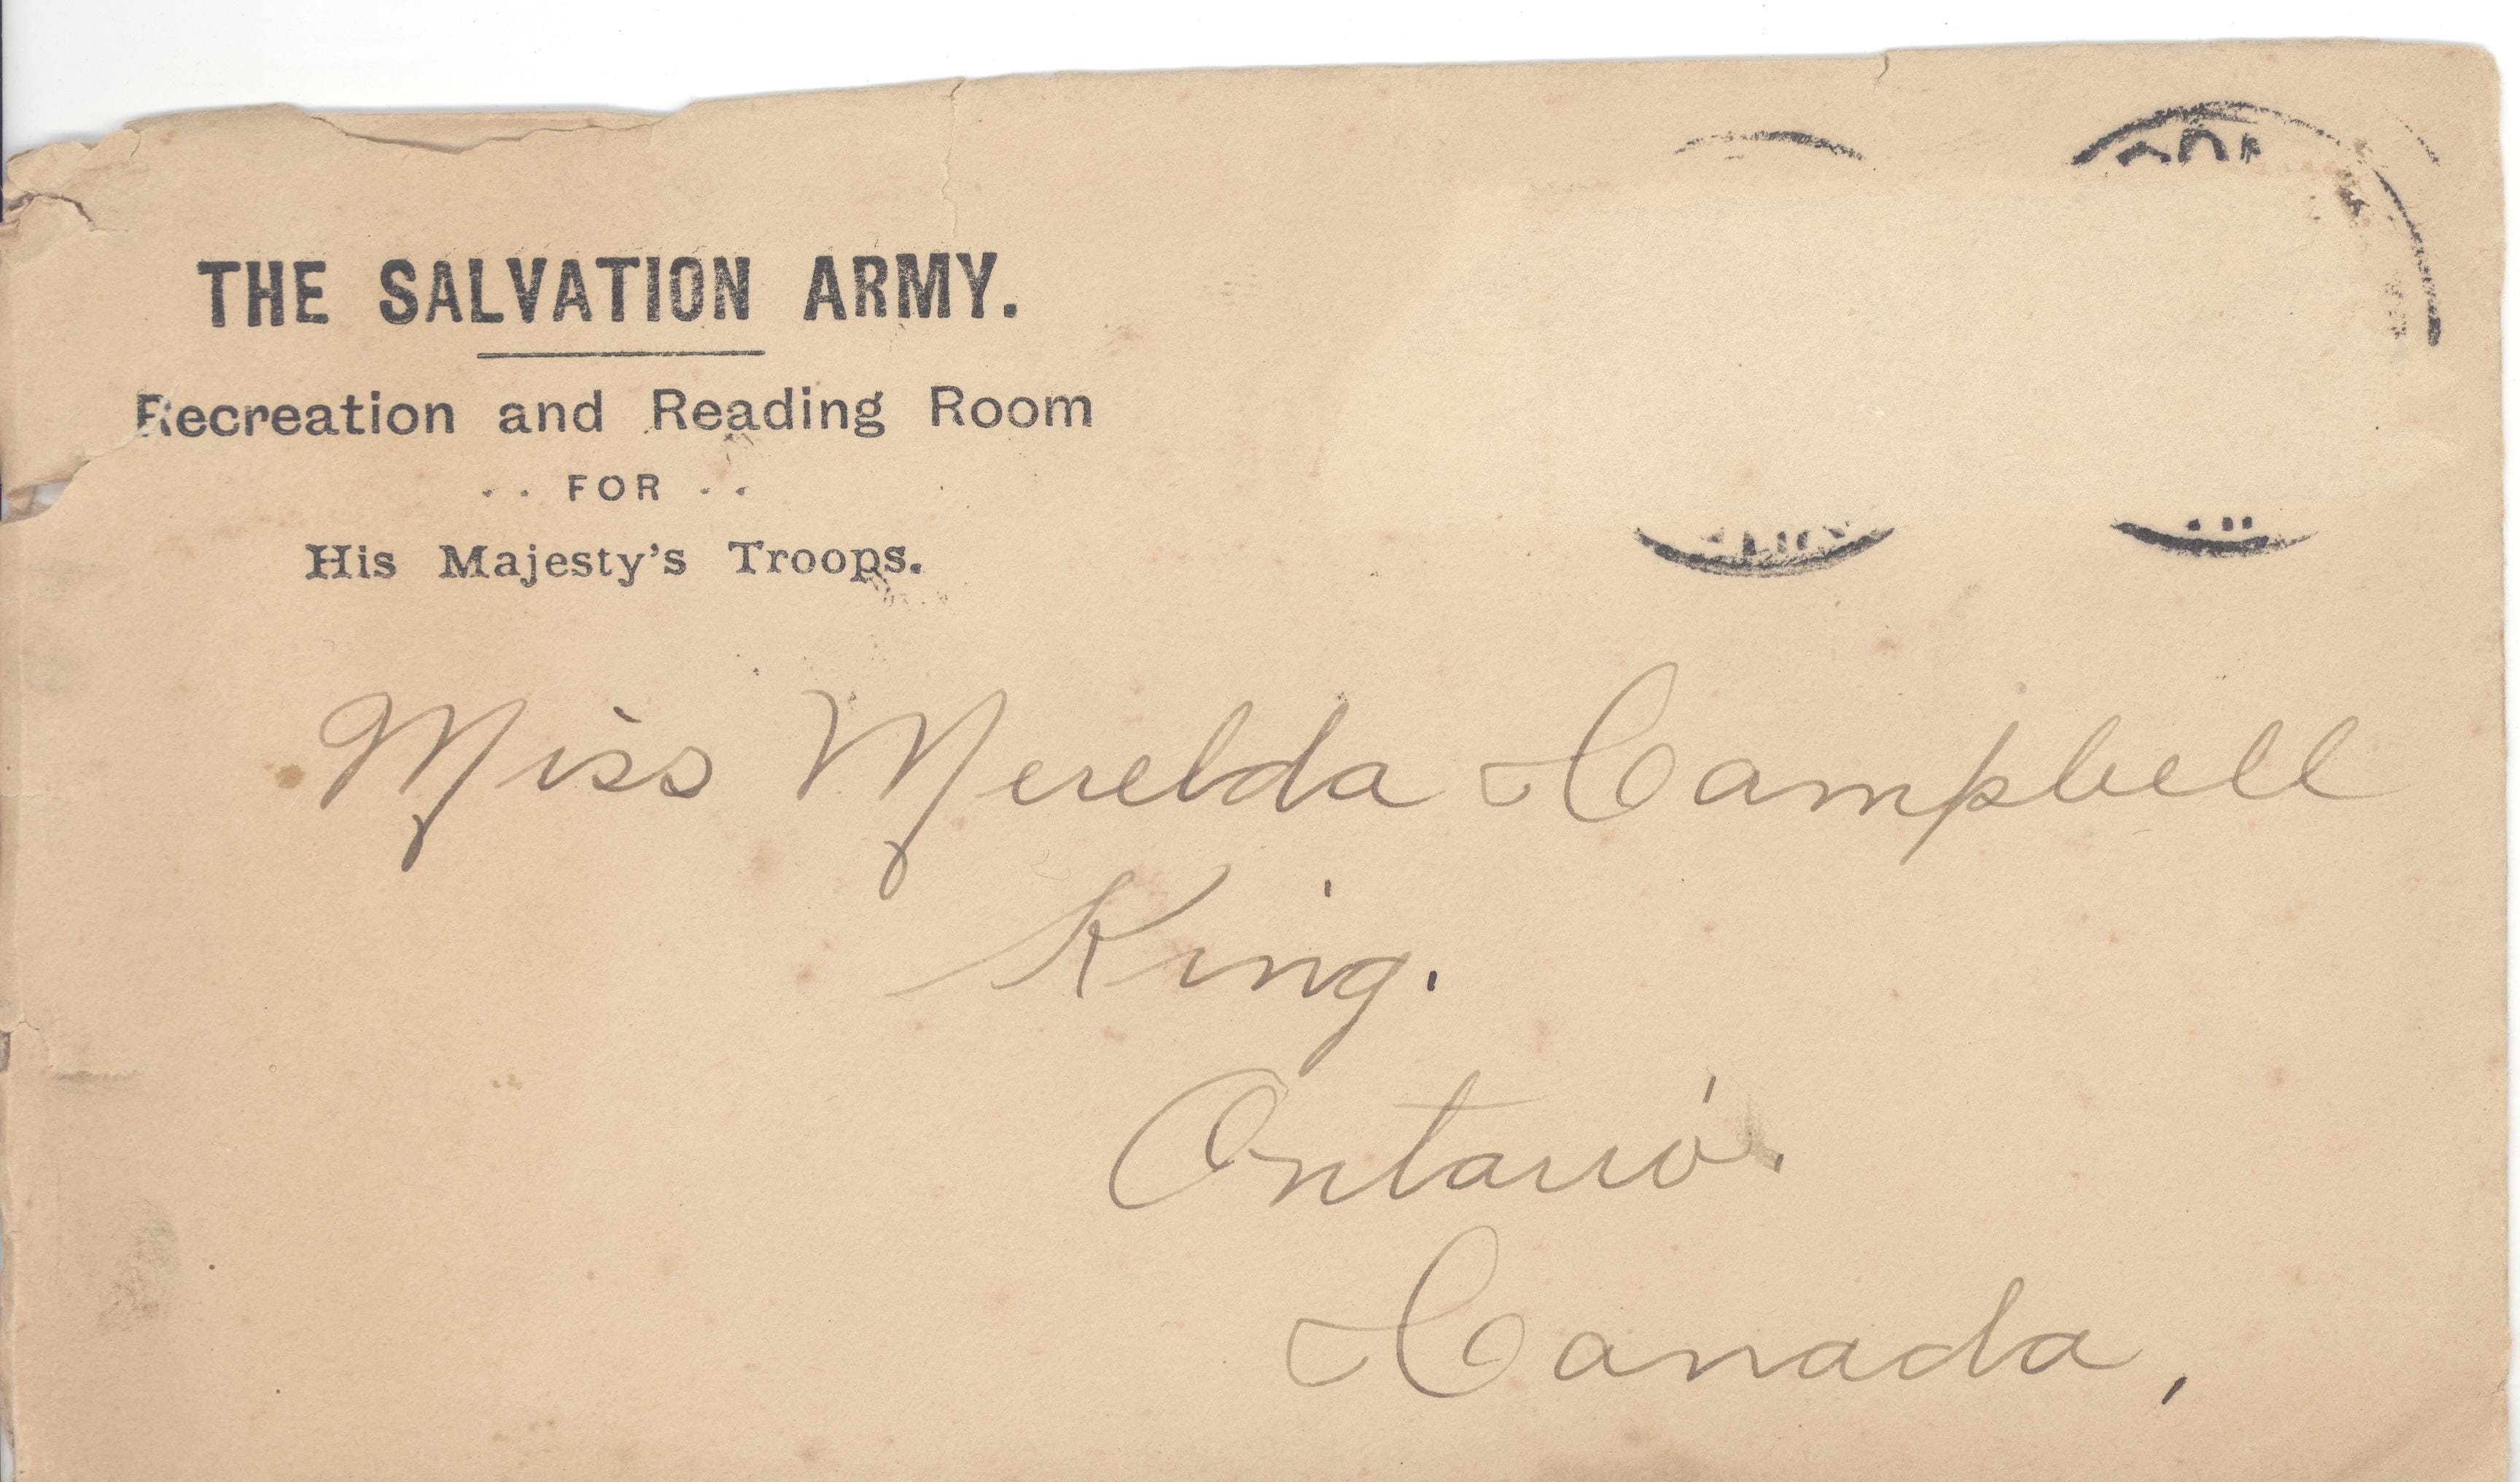 THE SALVATION ARMY.
Recreation and Reading Room
. . FOR . .
His Majesty's Troops.
Miss Merelda Campbell
King.
Ontario.
Canada,